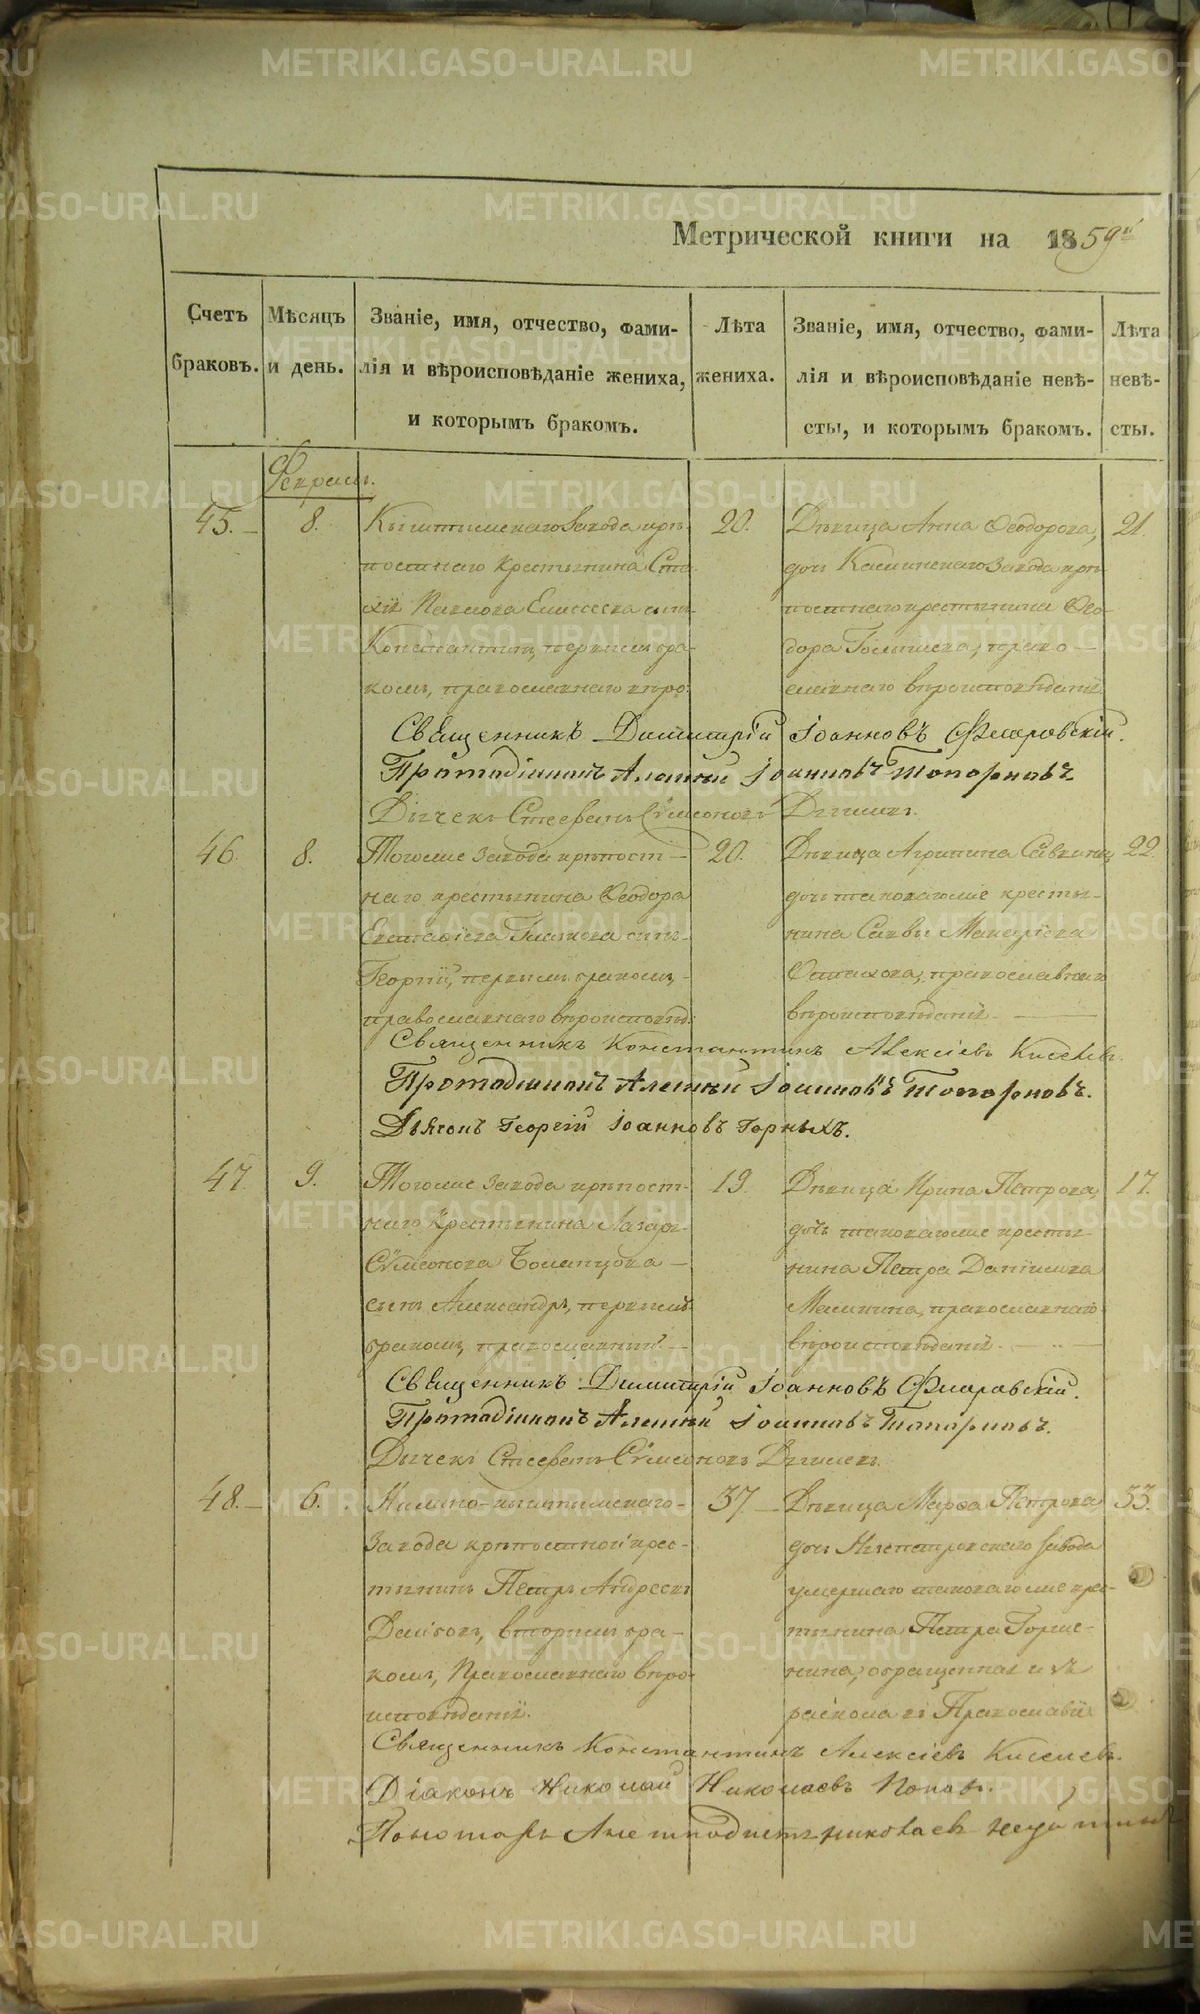 Метрической книги на 1859й
Счетъ браковъ.
Мѣсяцъ и день.
Званіе, имя, отчество, фами-
лія и вѣроисповѣданіе жениха,
и которымъ бракомъ.
Лѣта
жениха.
Званіе, имя, отчество, фами-
лія и вѣроисповѣданіе невѣ-
сты, и которымъ бракомъ.
Лѣта
невѣ-
сты.
Февраль.
45. 8.
Кыштымскаго Завода крѣ-
постнаго крестьянина
Павлова Елисеева сынъ
Константинъ, первымъ бра-
комъ, православнаго вѣро
20.
Дѣвица Анна Ѳеодорова,
дочь Каслинскаго Завода крѣ
постнаго крестьянина Ѳео-
дора право-
славнаго вѣроисповѣданія
21.
Священникъ Димитрій Іоанновъ Флоровскій.
Протодіаконъ Алексѣй Іоанновъ Топорковъ
Дьячекъ Стефанъ Сѵмеоновъ
46. 8.
Тогоже Завода крѣпост-
наго крестьянина Ѳеодора
Евстаѳіева Глазкова сынъ
Георгій, первымъ бракомъ,
православнаго вѣроисповѣд:
20.
Дѣвица Агрипина Саввина,
дочь таковагоже кресть-
янина Саввы Макаріева
православнаго
вѣроисповѣданія.
22.
Священникъ Константинъ Алексіевъ Киселевъ.
Протодіаконъ Алексѣй Іоанновъ Топорковъ.
Дьячекъ Георгій Іоанновъ Горныхъ.
47 9.
Тогоже Завода крѣпост-
наго крестьянина Лазаря
Сѵмеонова
сынъ Александръ, первымъ
бракомъ, православный.
19.
Дѣвица Ирина Петрова,
дочь таковагоже кресть-
янина Петра Даніилова
Малинина, православнаго
вѣроисповѣданія.
17.
Священникъ Димитрій Іоанновъ Флоровскій.
Протодіаконъ Алексѣй Іоанновъ Топорковъ.
Дьячекъ Стефанъ Сѵмеоновъ
48. 6.
Нижно-кыштымскаго
Завода крѣпостной крес-
тьянинъ Петръ Андреевъ
вторымъ бра-
комъ, Православнаго вѣро-
исповѣданія.
37
Дѣвица Марѳа Петрова
дочь Нязепетровскаго Завода
умершаго таковагоже крес-
тьянина Петра
обращенная изъ
раскола къ Православію
33.
Священникъ Константинъ Алексіевъ Киселевъ.
Діаконъ Николай Николаевъ Поповъ.
Пономарь Николаевъ
METRIKI.GASO-URAL.RU